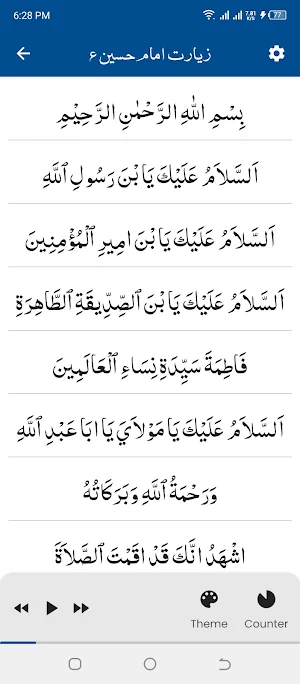 6:28 PM 7.81 K/s 77
زیارت امام حسین ع
بِسْمِ اللّٰهِ الرَّحْمٰنِ الرَّحِيْمِ
اَلسَّلَامُ عَلَيْكَ يَا بْنَ رَسُولِ ٱللَّهِ
اَلسَّلَامُ عَلَيْكَ يَا بْنَ امِيرِ ٱلْمُؤْمِنِينَ
اَلسَّلَامُ عَلَيْكَ يَا بْنَ ٱلصِّدِّيقَةِ ٱلطَّاهِرَةِ
فَاطِمَةَ سَيِّدَةِ نِسَاءِ ٱلْعَالَمِينَ
اَلسَّلَامُ عَلَيْكَ يَا مَوْلاَيَ يَا ابَا عَبْدِ ٱللَّهِ
وَرَحْمَةُ ٱللَّهِ وَبَرَكَاتُهُ
اشْهَدُ انَّكَ قَدْ اقَمْتَ ٱلصَّلاَةَ
Theme Counter